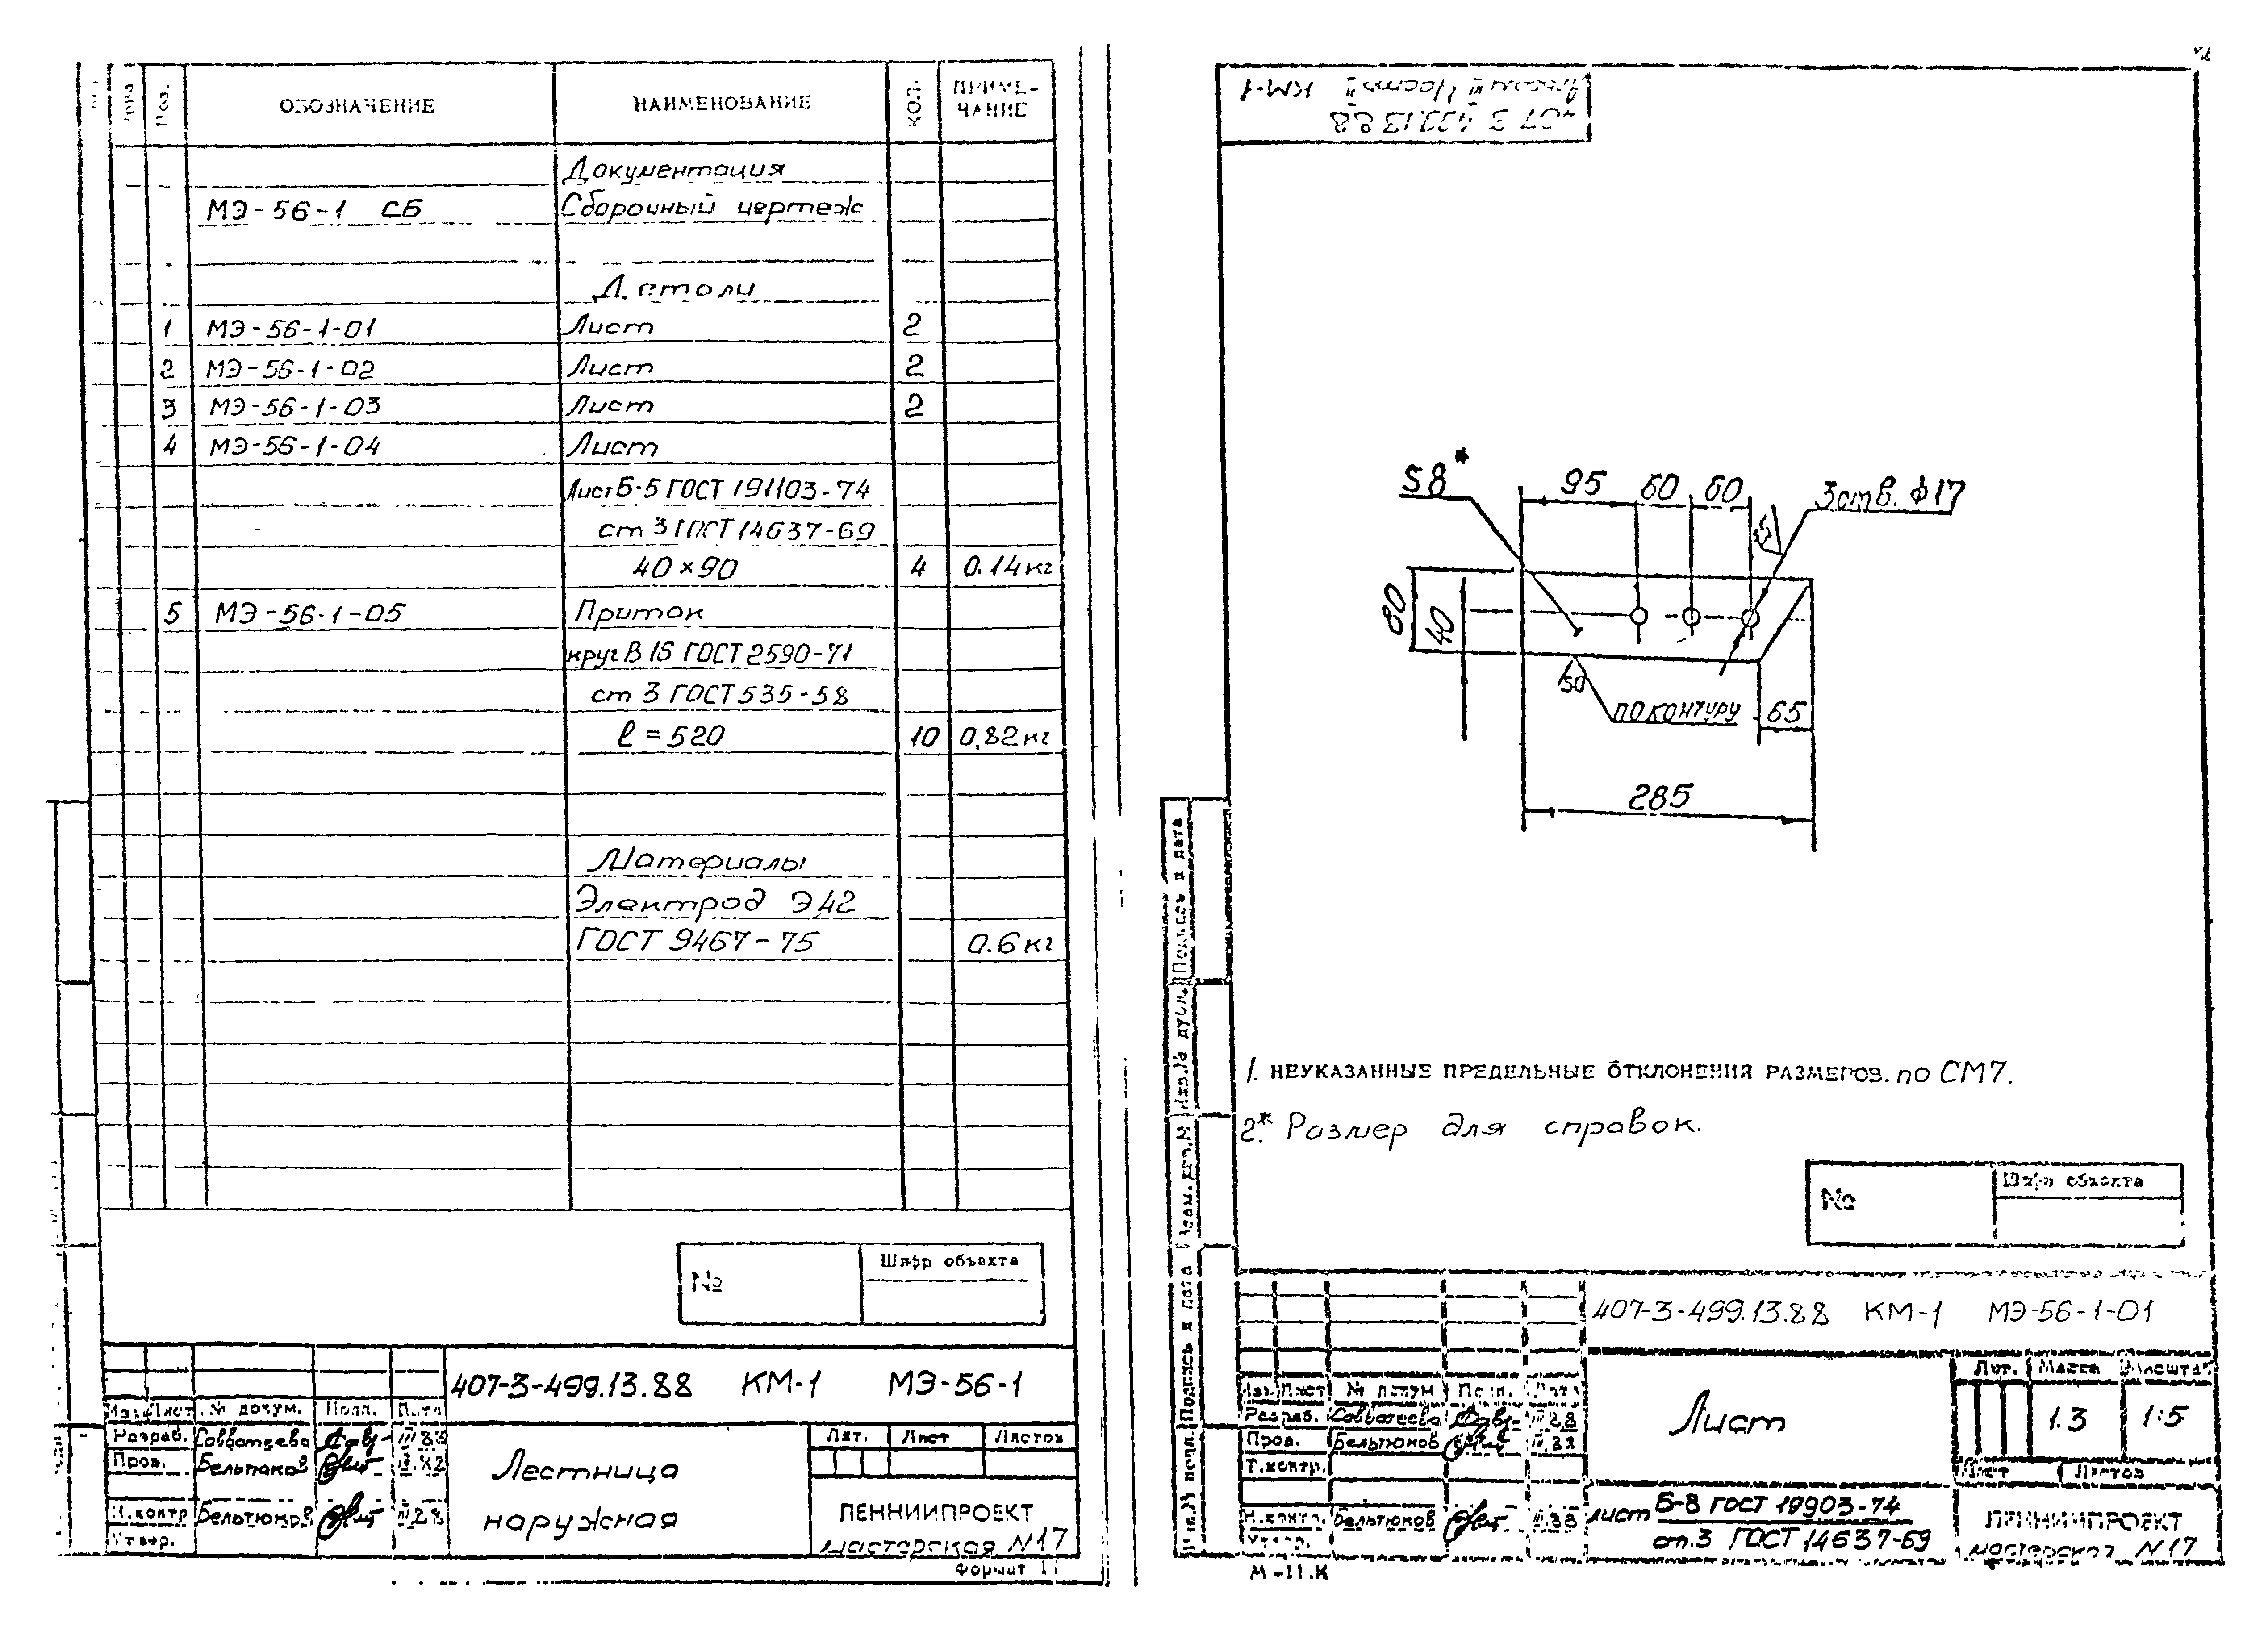 Поз.	ОБОЗНАЧЕНИЕ	НАИМЕНОВАНИЕ	КОЛ.	ПРИМЕ-
ЧАНИЕ
Документация
МЭ-56-1 СБ	Сборочный чертеж
Детали
1	МЭ-56-1-01	Лист	2
2	МЭ-56-1-02	Лист	2
3	МЭ-56-1-03	Лист	2
4	МЭ-56-1-04	Лист
Лист Б-5 ГОСТ 191103-74
ст 3 ГОСТ 14637-69
40×90	4	0.14кг
5	МЭ-56-1-05	Приток
круг В 16 ГОСТ 2590-71
ст 3 ГОСТ 535-58
ℓ=520	10	0,82кг
Материалы
Электрод Э42
ГОСТ 9467-75	0.6кг
№	Шифр объекта
407-3-499.13.88 КМ-1 МЭ-56-1
Изм.	Лист	№ докум.	Подп.	Дата
Разраб.	Савватеева
Пров.	Бельтюков
Н.контр	Бельтюков
Утвер.
Лестница
наружная
Лит.	Лист	Листов
ЛЕННИИПРОЕКТ
мастерская N17
Формат 11
407 3 499.13 88
Альбом II Часть II КМ-1
S8*
95 60 60
3отв. Ф17
80
40
50
по контуру
65
285
1. НЕУКАЗАННЫЕ ПРЕДЕЛЬНЫЕ ОТКЛОНЕНИЯ РАЗМЕРОВ. по СМ7.
2.* Размер для справок.
№	Шифр объекта
Инв.№ подл.	Подпись и дата	Взам.инв.№	Инв.№ дубл.	Подпись и дата
407-3-499.13.88 КМ-1 МЭ-56-1-01
Изм.	Лист	№ докум	Подп.	Дата
Разраб.	Савватеева
Пров.	Бельтюков
Т.контр.
Н.контр.	Бельтюков
Утвер.
Лист
Лит.	Масса	Масштаб
1.3	1:5
Лист	Листов
лист Б-8 ГОСТ 19903-74
ст.3 ГОСТ 14637-69
ЛЕННИИПРОЕКТ
мастерская N17
М-11.К